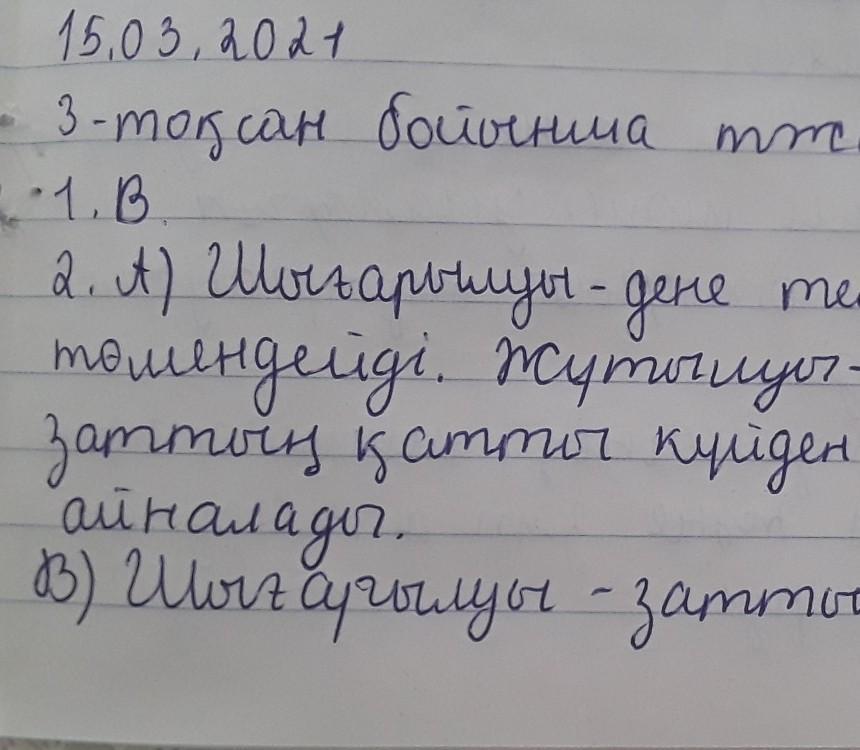 15.03.2021
3-тоқсан бойынша тжб
1. В
2. А) Шығарылуы - дене
төмендейді. Жұтылуы -
заттың қатты күйден
айналады.
В) Шығарылуы -